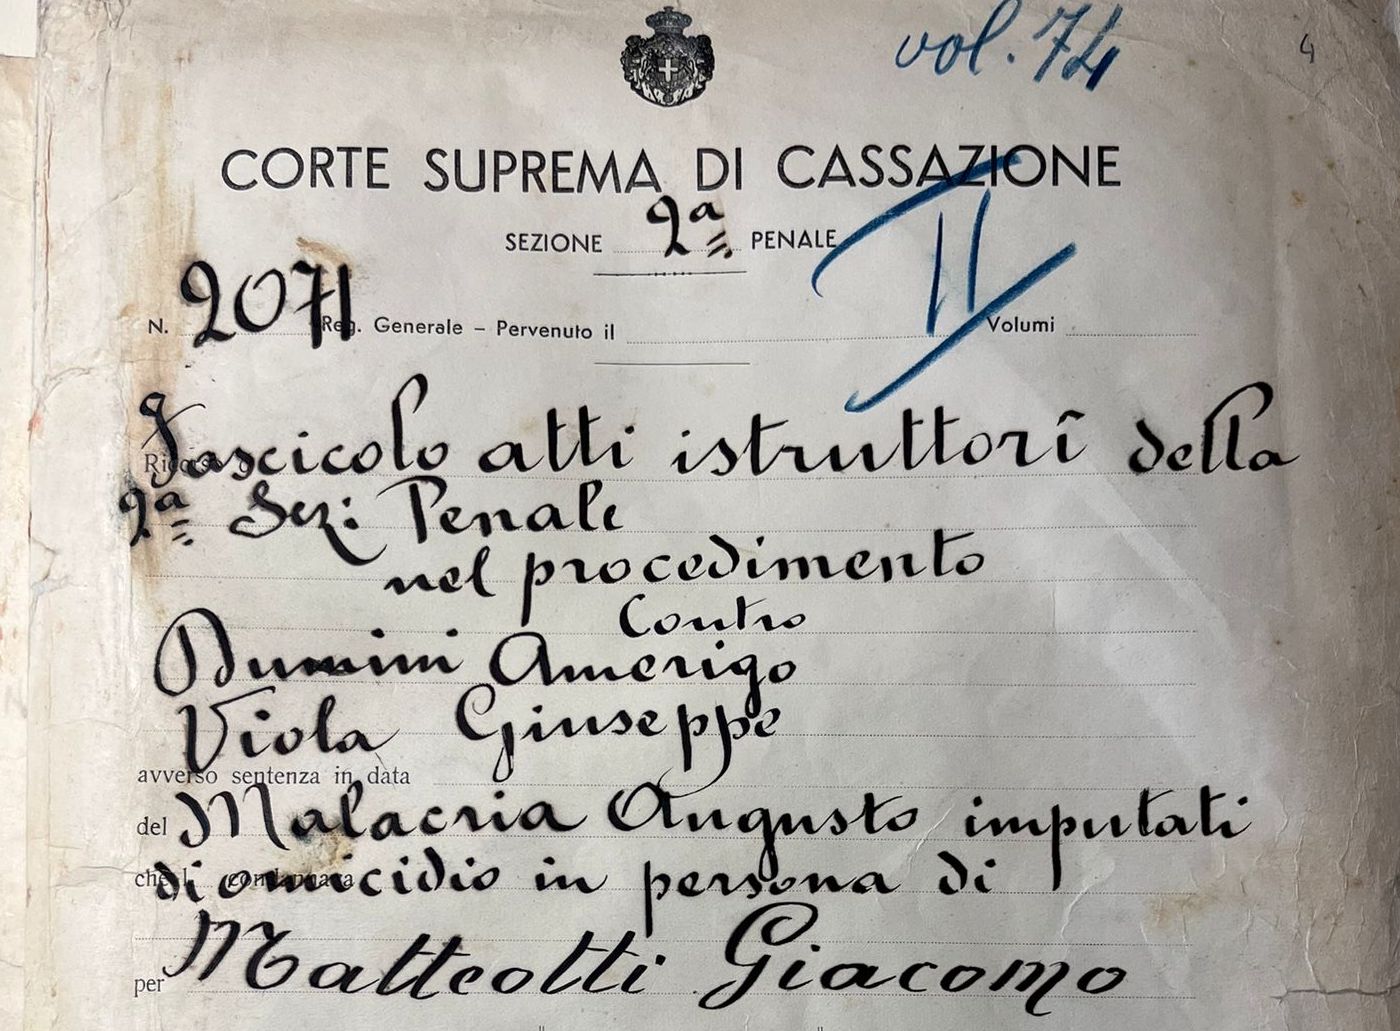 vol. 74
4
CORTE SUPREMA DI CASSAZIONE
SEZIONE 2ª PENALE
II
N. 2071 Reg. Generale – Pervenuto il Volumi
Fascicolo atti istruttorî della
2ª Sez: Penale
nel procedimento
Contro
Dumini Amerigo
Viola Giuseppe
avverso sentenza in data
del Malacria Augusto imputati
di omicidio in persona di
che condannava
per Matteotti Giacomo